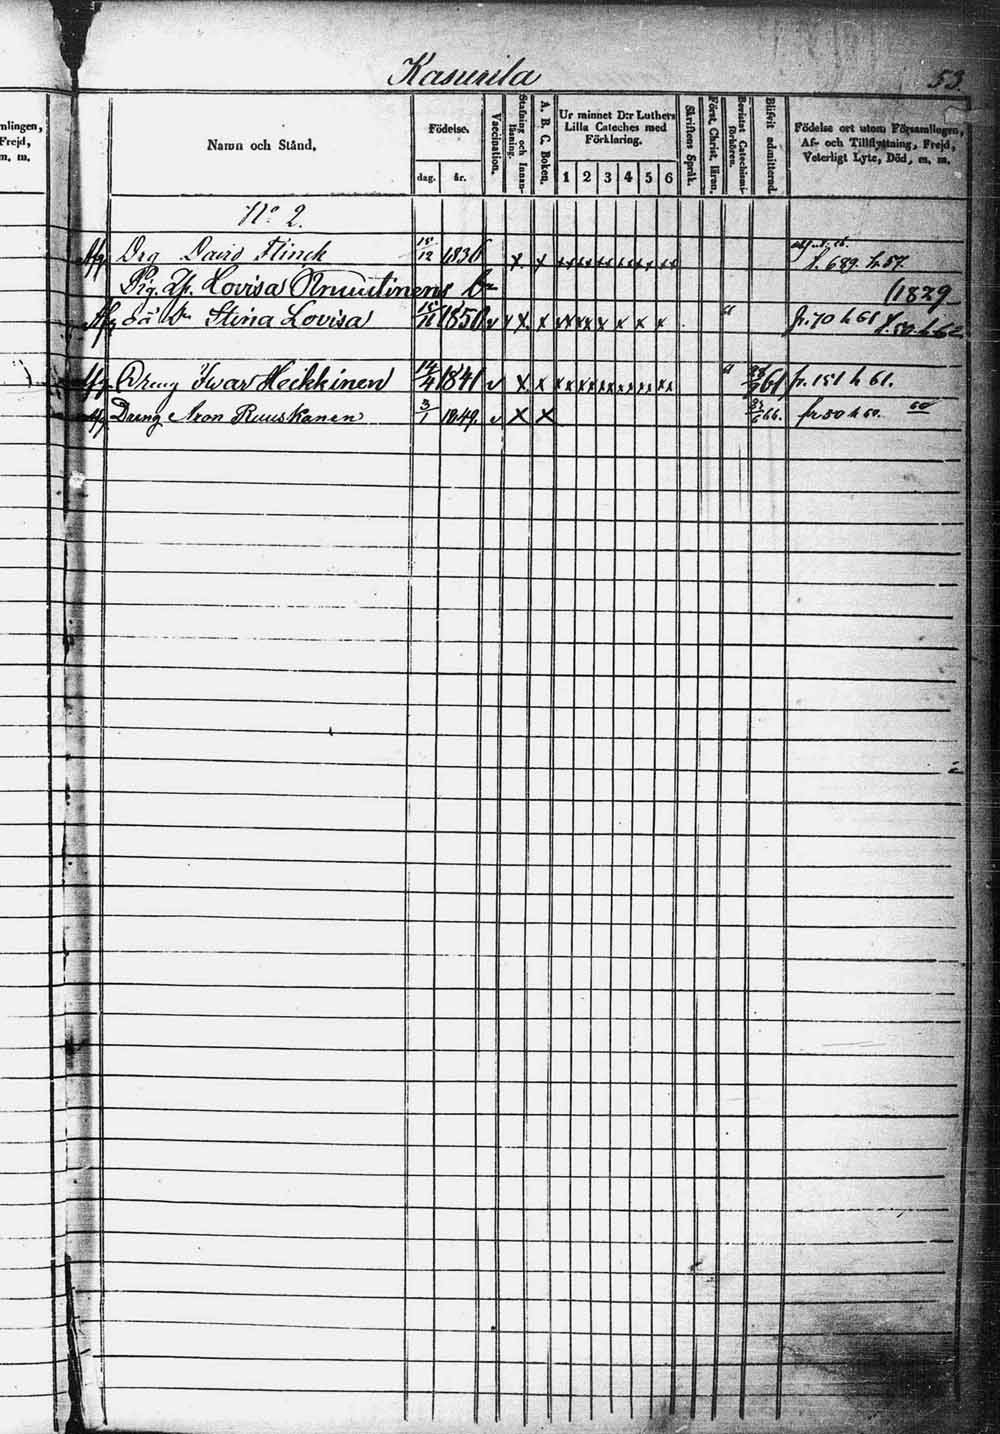 Kasurila
53.
mlingen,
Frejd,
m. m.
Namn och Stånd,
Födelse.
dag. år.
Vaccination.
Stafning och Innan-
läsning.
A. B. C. Boken.
Ur minnet D:r Luthers
Lilla Cateches med
Förklaring.
1 2 3 4 5 6
Skriftens Språk.
Först. Christ. läran.
Bevistat Catechismi-
förhören.
Blifvit admitterad.
Födelse ort utom Församlingen,
Af- och Tillflyttning, Frejd,
Veterligt Lyte, Död, m. m.
No 2.
Afg Drg David Flinck 18/12 1836 x x f. 689. h 57.
Pig. Lovisa Nuutinens (1829
Afg Stina Lovisa 1850 v x x x x x x x x " fr. 70 h 61 f. 50. h 62
Afg Dreng Ivar Heikkinen 14/4 1841 v x x " 61 fr. 151 h 61.
Afg Dreng Aron Ruuskanen 3/1 1849. v x x 66. fr 50 h 60.